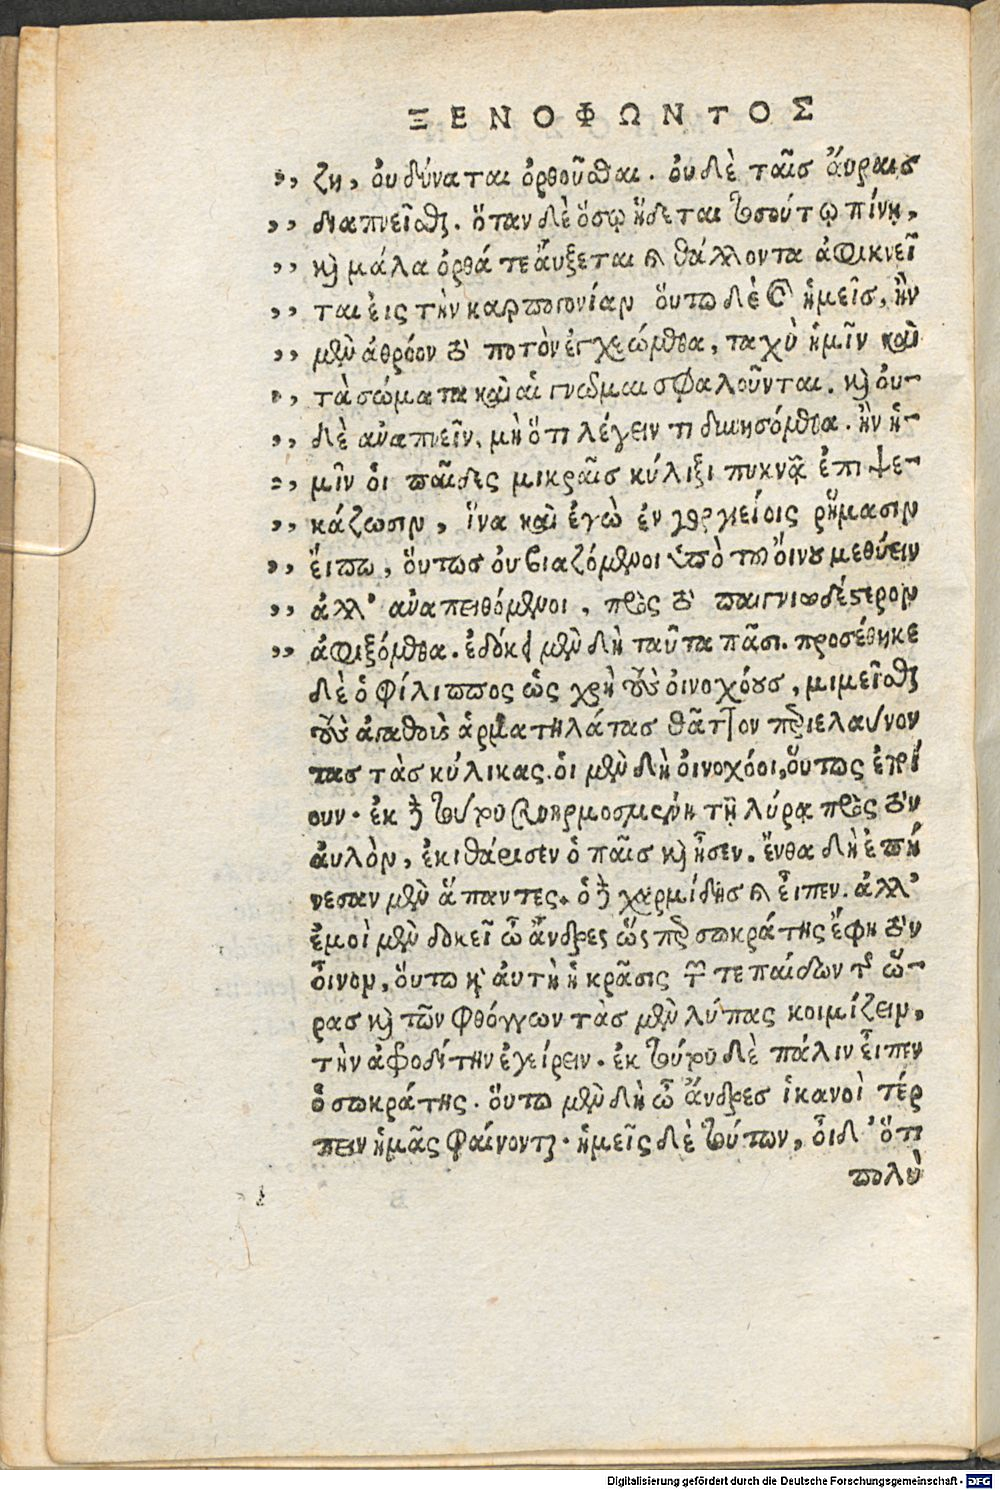 ΞΕΝΟΦΩΝΤΟΣ
,, ζη, ὀυ δύναται ὀρθοῦσθαι. ὀυδὲ ταῖσ ἄυραισ
,, διαπνεῖσθαι. ὅταν δὲ ὅσῳ ἥδεται τοσούτῳ πίνῃ,
,, καὶ μάλα ὀρθά τε ἄυξεται καὶ θάλλοντα ἀφικνεῖ
,, ται ἐις τὴν καρπογονίαν ὅυτω δὲ καὶ ἡμεῖσ, ἢν
,, μὲν ἀθρόον τὸ ποτὸν ἐγχεώμεθα, ταχὺ ἡμῖν καὶ
,, τὰ σώματα καὶ αἱ γνῶμαι σφαλοῦνται. καὶ ὀυ-
,, δὲ ἀναπνεῖν, μὴ ὅτι λέγειν τι δυνησόμεθα. ἢν ἡ-
,, μῖν ὁι παῖδες μικραῖσ κύλιξι πυκνᾷ ἐπιψε-
,, κάζωσιν, ἵνα καὶ ἐγὼ ἐν γοργιείοις ῥήμασιν
,, ἔιπω, ὅυτωσ ὀυ βιαζόμενοι ὑπὸ τοῦ ὄινου μεθύειν
,, ἀλλ' ἀναπειθόμενοι, πρὸς τὸ παιγνιωδέστερον
,, ἀφιξόμεθα. ἐδόκει μὲν δὴ ταῦτα πᾶσι. προσέθηκε
δὲ ὁ φίλιππος ὡς χρὴ τοὺς ὀινοχόους, μιμεῖσθαι
τοὺς ἀγαθοὺς ἁρματηλάτασ θᾶττον περιελαύνον
τασ τὰσ κύλικας. ὁι μὲν δὴ ὀινοχόοι, ὅυτως ἐποί
ουν. ἐκ δὲ τούτου συνηρμοσμένῃ τῇ λύρᾳ πρὸς τὸν
ἀυλὸν, ἐκιθάρισεν ὁ παῖσ καὶ ᾖσεν. ἔνθα δὴ ἐπῄ
νεσαν μὲν ἅπαντες. ὁ δὲ χαρμίδησ καὶ εἶπεν. ἀλλ'
ἐμοὶ μὲν δοκεῖ ὦ ἄνδρες ὥσπερ σωκράτης ἔφη τὸν
ὄινον, ὅυτω καὶ ἁυτὴ ἡ κρᾶσις τῶν τε παίδων τῆς ὥ-
ρασ καὶ τῶν φθόγγων τὰσ μὲν λύπας κοιμίζειν,
τὴν ἀφροδίτην ἐγείρειν. ἐκ τούτου δὲ πάλιν ἶειπεν
ὁ σωκράτης. ὅυτω μὲν δὴ ὦ ἄνδρεσ ἱκανοὶ τέρ
πειν ἡμᾶς φαίνονται. ἡμεῖς δὲ τούτων, ὀῖδ' ὅτι
πολὺ
Digitalisierung gefördert durch die Deutsche Forschungsgemeinschaft - DFG